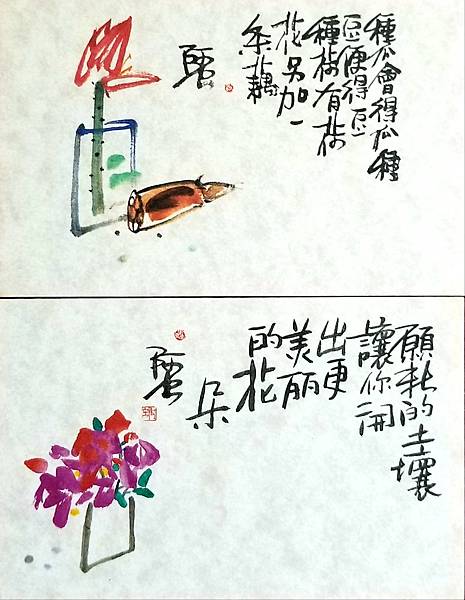 種瓜會得瓜種
豆便得豆
種荷有荷
花另加一
条藕
願我的土壤
讓你開
出更
美丽
的花
朵